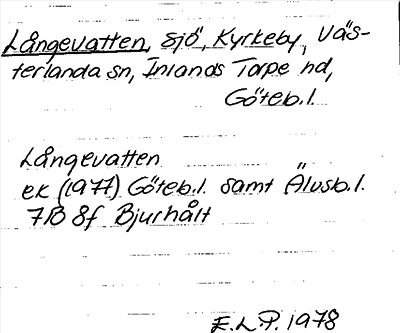 Långevatten, sjö, Kyrkeby, Väs-
terlanda sn, Inlands Torpe hd,
Göteb.l.
Långevatten
ek (1977) Göteb.l. samt Älvsb.l.
7B 8f Bjurhålt
E.L.P. 1978